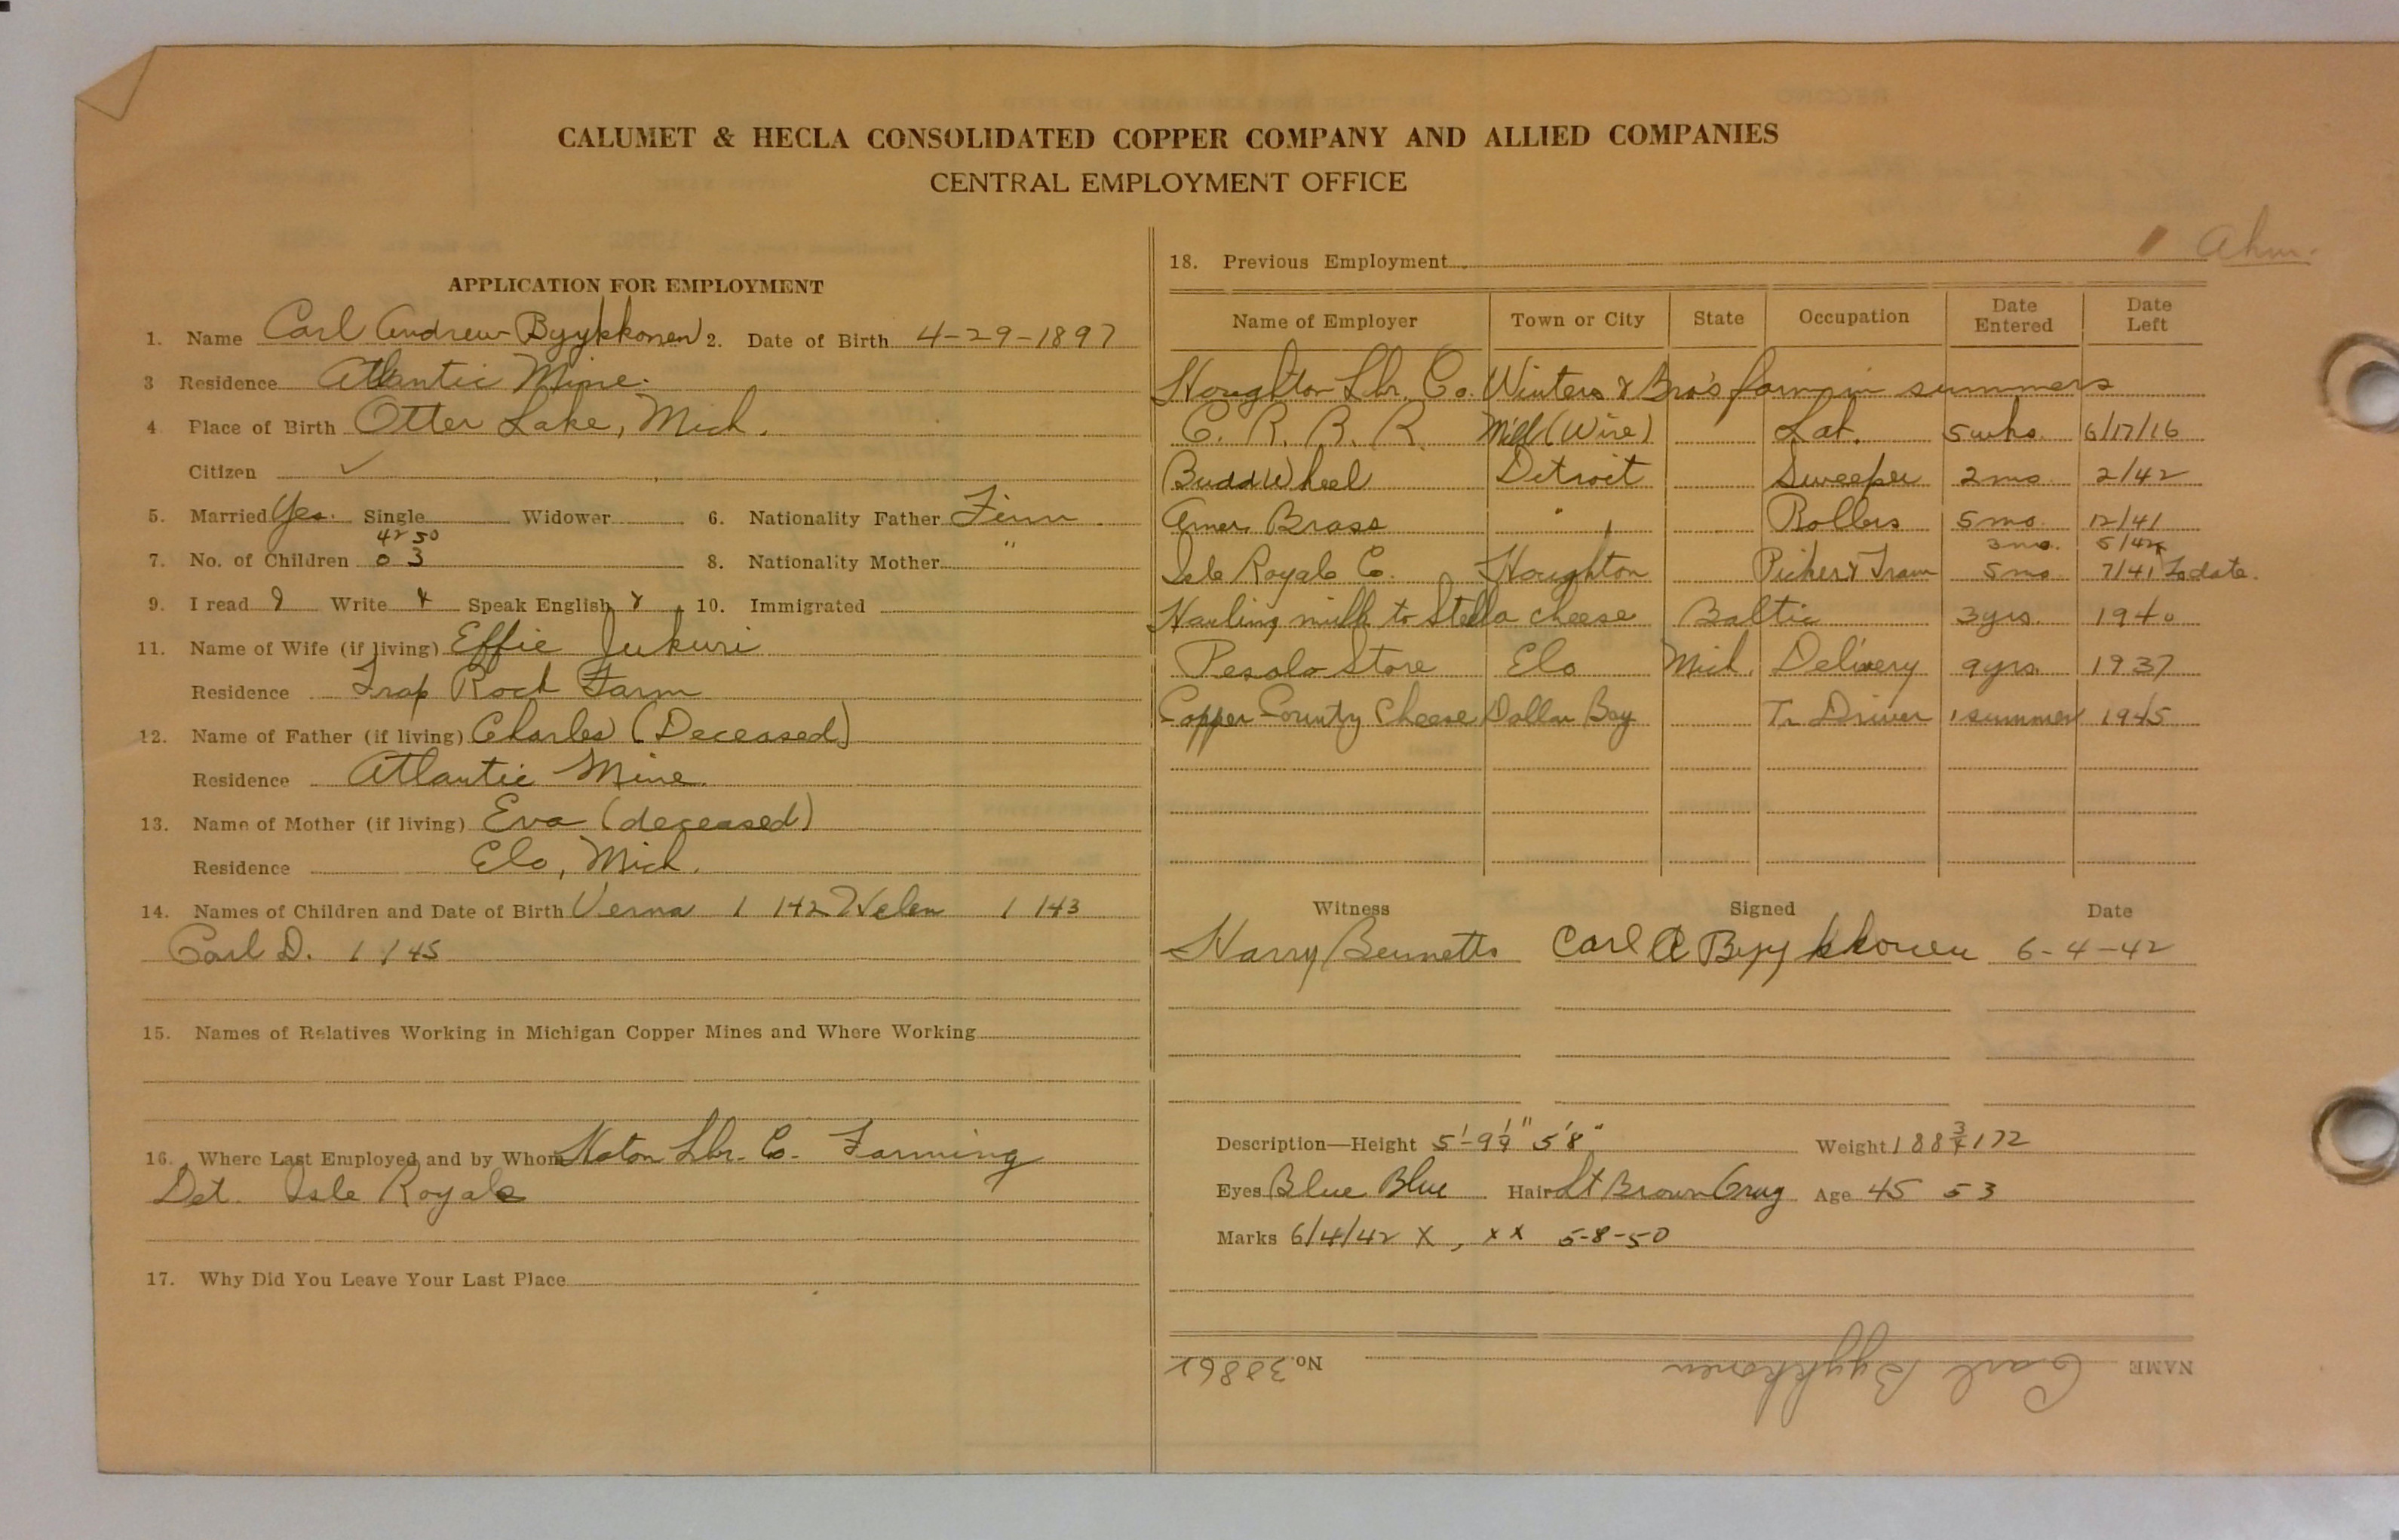 CALUMET & HECLA CONSOLIDATED COPPER COMPANY AND ALLIED COMPANIES
CENTRAL EMPLOYMENT OFFICE
APPLICATION FOR EMPLOYMENT
1. Name Carl Andrew Byykkonen 2. Date of Birth 4-29-1897
3 Residence Atlantic Mine.
4 Place of Birth Otter Lake, Mich.
Citizen ✓
5. Married Yes. Single Widower 6. Nationality Father Finn
42 50
7. No. of Children 0 3 8. Nationality Mother "
9. I read Write Speak English 10. Immigrated
11. Name of Wife (if living) Effie Jukuri
Residence Trap Rock Farm
12. Name of Father (if living) Charles (Deceased)
Residence Atlantic Mine.
13. Name of Mother (if living) Eva (deceased)
Residence Elo, Mich.
14. Names of Children and Date of Birth Verna 1 142 Helen 1 143
Carl D. 1 / 45
15. Names of Relatives Working in Michigan Copper Mines and Where Working
16. Where Last Employed and by Whom Hoton Lbr. Co. Farming
Det. Isle Royale
17. Why Did You Leave Your Last Place
Ahm.
18. Previous Employment
Name of Employer Town or City State Occupation Date Entered Date Left
Houghton Lbr. Co. Winters & Bro's farm in summers
C. R. R. R. Mill (Wire) Lab. 5 wks. 6/17/16
Budd Wheel Detroit Sweeper 2 mo. 2/42
Amer. Brass " Rollers 5 mo. 12/41
3 mo. 5/42
Isle Royale C. Houghton Picker & Tram 5 mo 7/41 To date.
Hauling milk to Stella cheese Baltic 3 yrs. 1940
Pesolo Store Elo Mich. Delivery 9 yrs. 1937
Copper County Cheese Dollar Bay Tr. Driver 1 summer 1945
Witness Signed Date
Harry Bennetts Carl A Byykkonen 6-4-42
Description—Height 5'-9¼" 5'8" Weight 188¾ 172
Eyes Blue Blue Hair Lt Brown Gray Age 45 53
Marks 6/4/42 X, x x 5-8-50
NAME Carl Byykkonen No. 38862